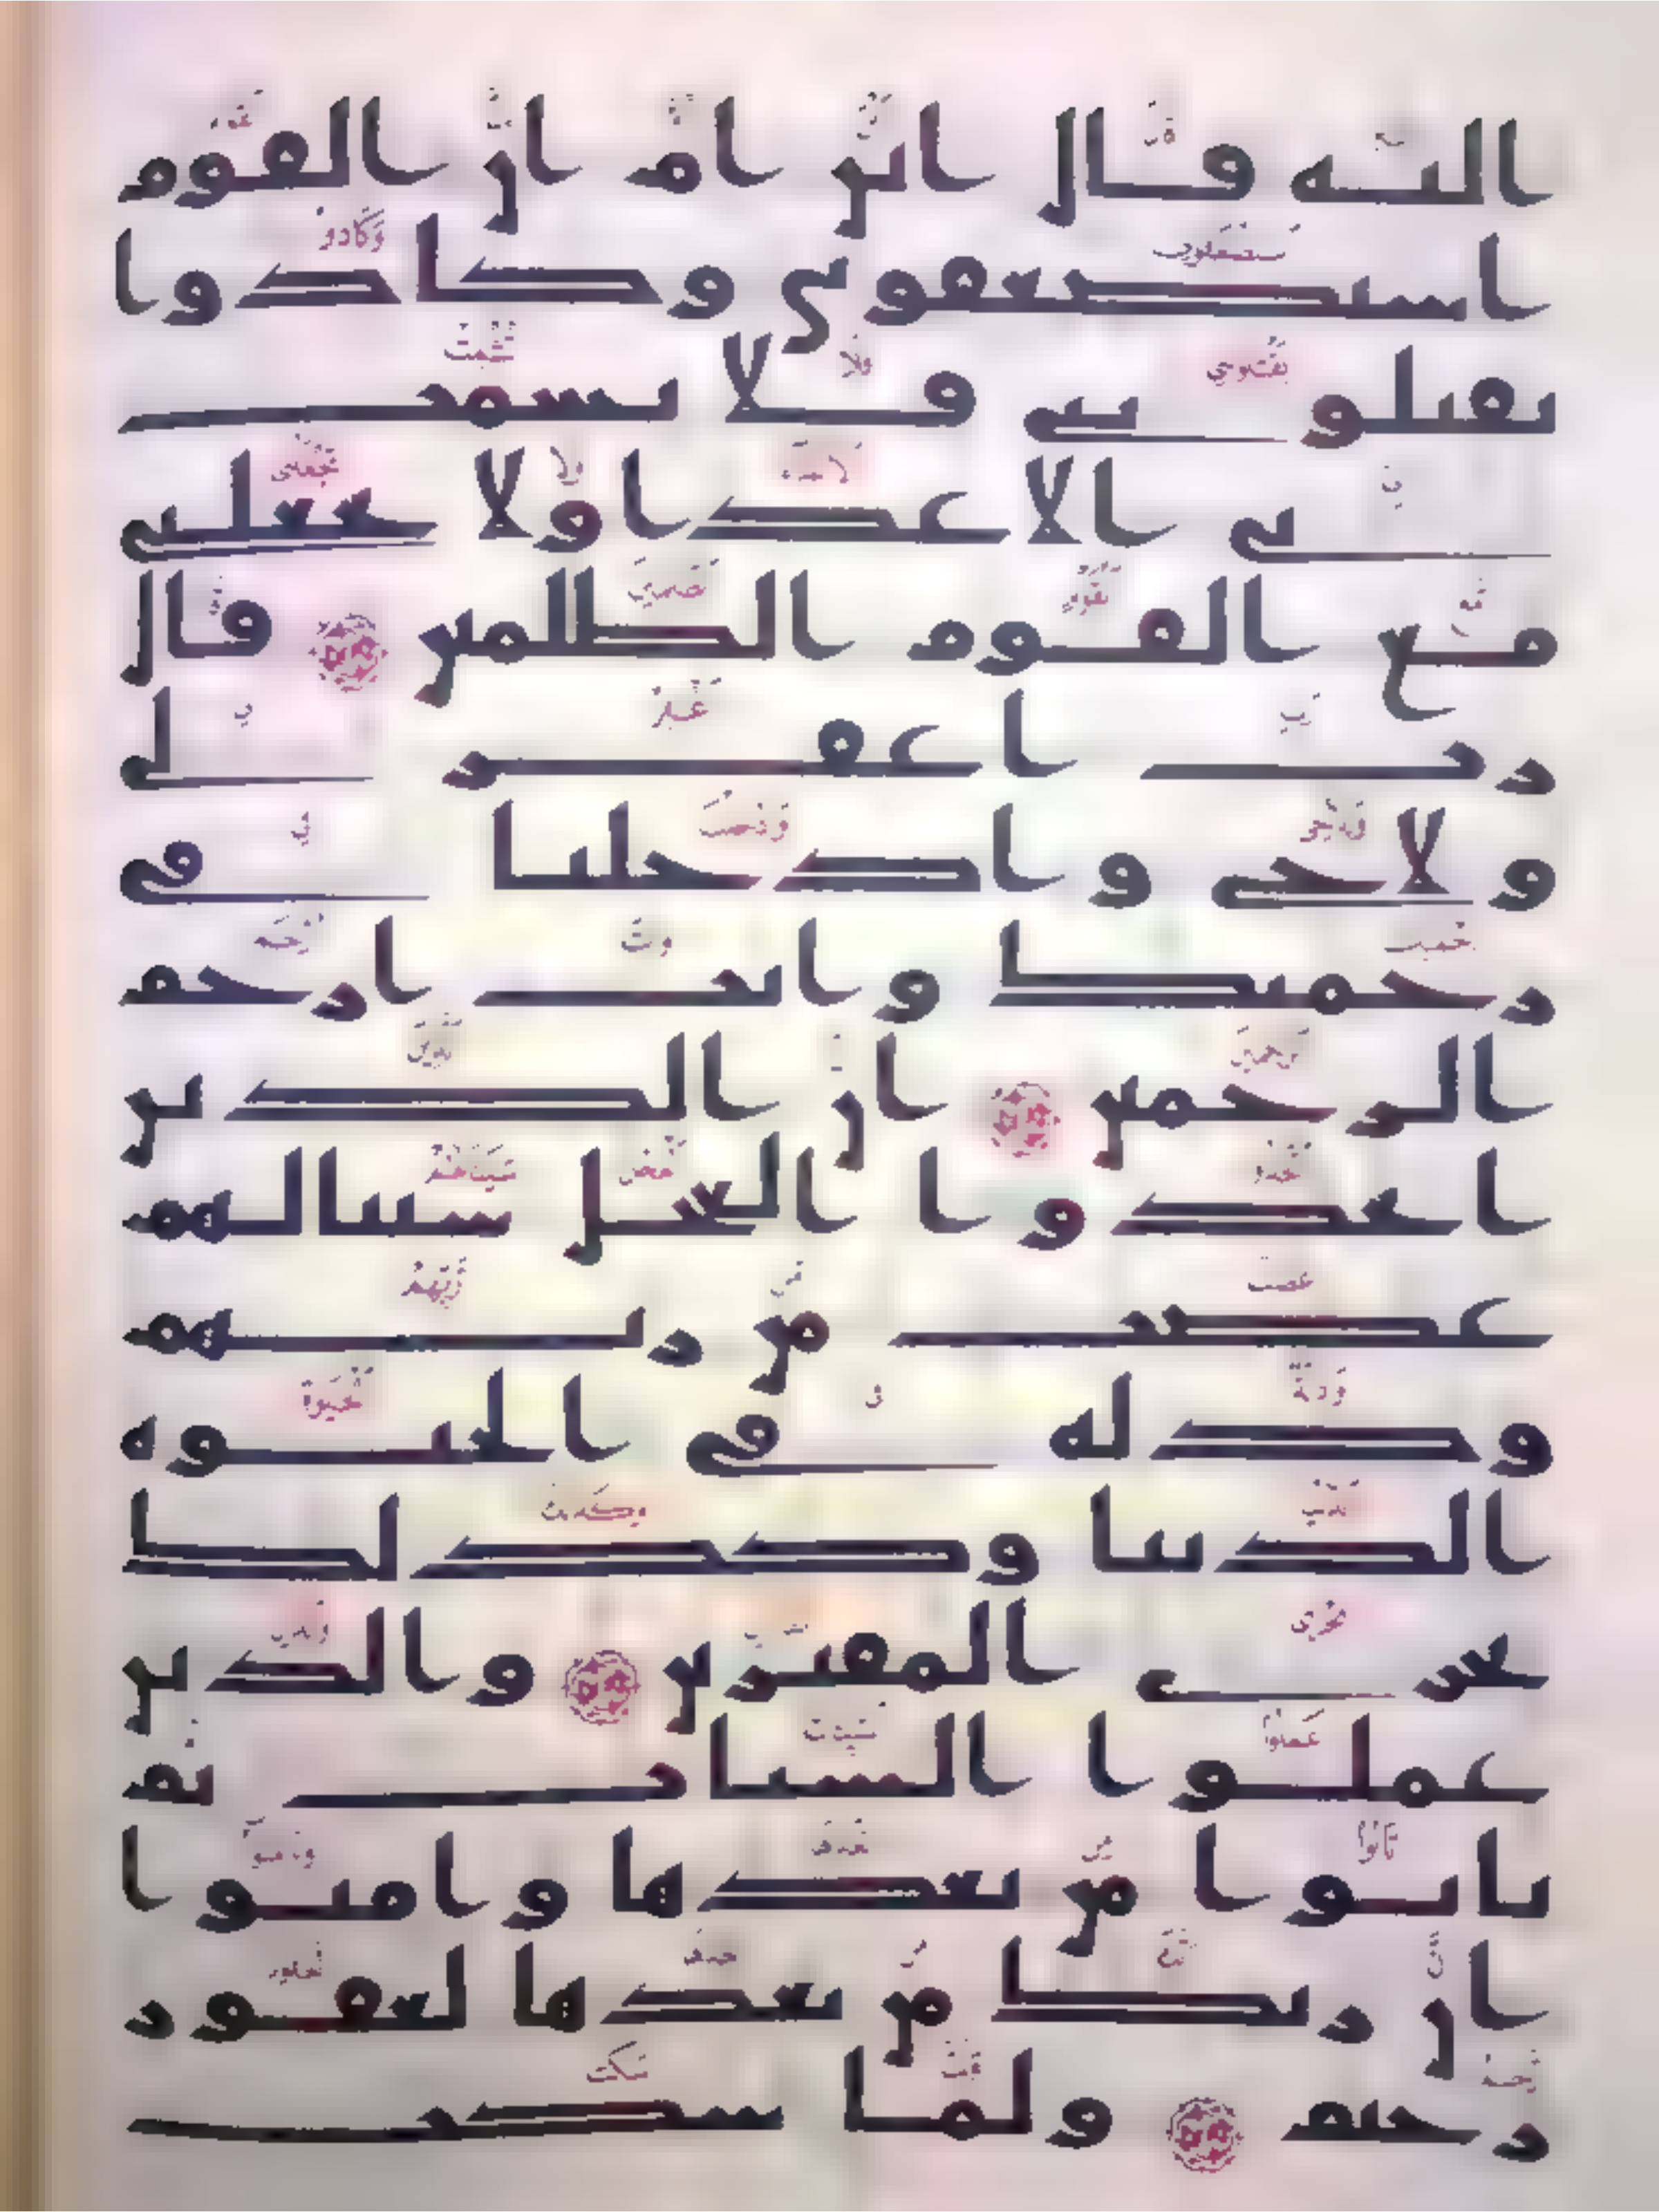 اليه قال ابن ام ان القوم
استضعفوني وكادوا
يقتلونني فلا تشمت
بي الاعدا ولا تجعلني
مع القوم الظلمين قال
رب اغفر لي
ولاخي وادخلنا في
رحمتك وانت ارحم
الرحمين ان الذين
اتخذوا العجل سينالهم
غضب من ربهم
وذله في الحيوه
الدنيا وكذلك
نجزي المفترين والذين
عملوا السيات ثم
تابوا من بعدها وامنوا
ان ربك من بعدها لغفور
رحيم ولما سكت